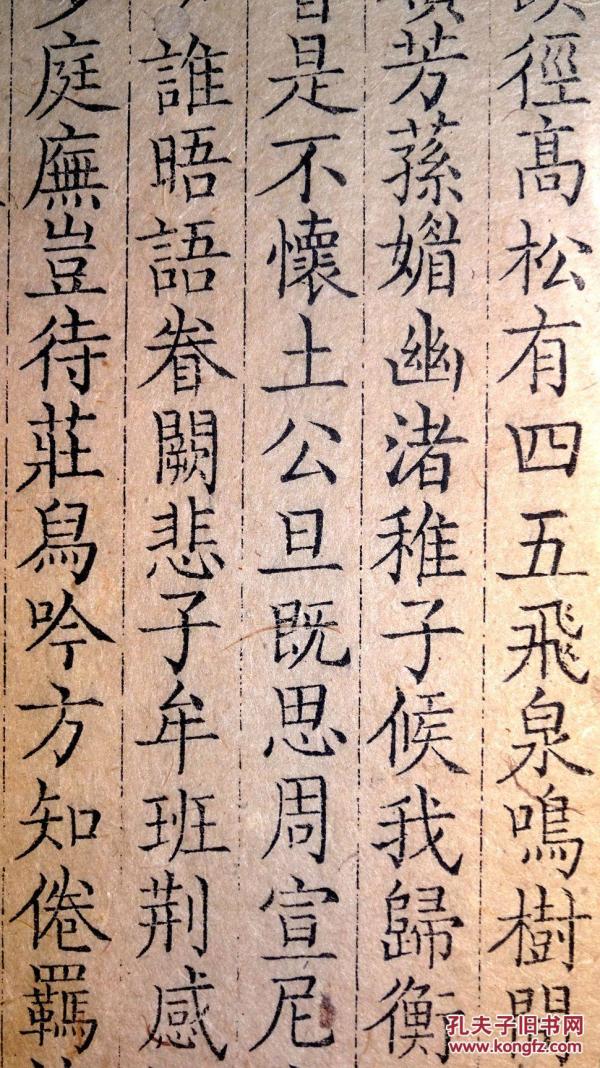 徑高松有四五飛泉鳴樹間
芳蓀媚幽渚稚子候我歸衡
是不懷土公旦既思周宣尼
誰晤語眷闕悲子牟班荆感
庭廡豈待莊舄吟方知倦羈
孔夫子旧书网
www.kongfz.com